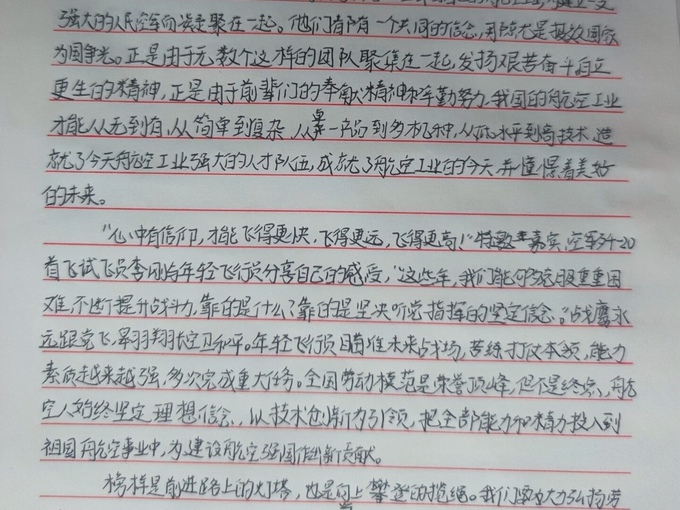 强大的人民空军而凝聚在一起。他们有一个共同的信念，用航空报效国家
为国争光。正是由于无数个这样的团队聚集在一起，发扬艰苦奋斗自立
更生的精神，正是由于前辈们的奉献精神和辛勤努力，我国的航空工业
才能从无到有，从简单到复杂，从单一产品到多机种，从低水平到高技术，造
就了今天航空工业强大的人才队伍，成就了航空工业的今天，并憧憬着美好
的未来。
“心中有信仰，才能飞得更快，飞得更远，飞得更高！”嘉宾，空军歼-20
首飞试飞员李刚与年轻飞行员分享自己的感受，“这些年，我们能够克服重重困
难，不断提升战斗力，靠的是什么？靠的是坚决听党指挥的坚定信念。”战鹰永
远跟党飞，昂羽翔长空卫和平。年轻飞行员瞄准未来战场，苦练打仗本领，能力
素质越来越强，多次完成重大任务。全国劳动模范是荣誉顶峰，但不是终点，航
空人始终坚定理想信念，以技术创新为引领，把全部能力和精力投入到
祖国航空事业中，为建设航空强国作出新贡献。
榜样是前进路上的灯塔，也是向上攀登的揽绳。我们要大力弘扬劳